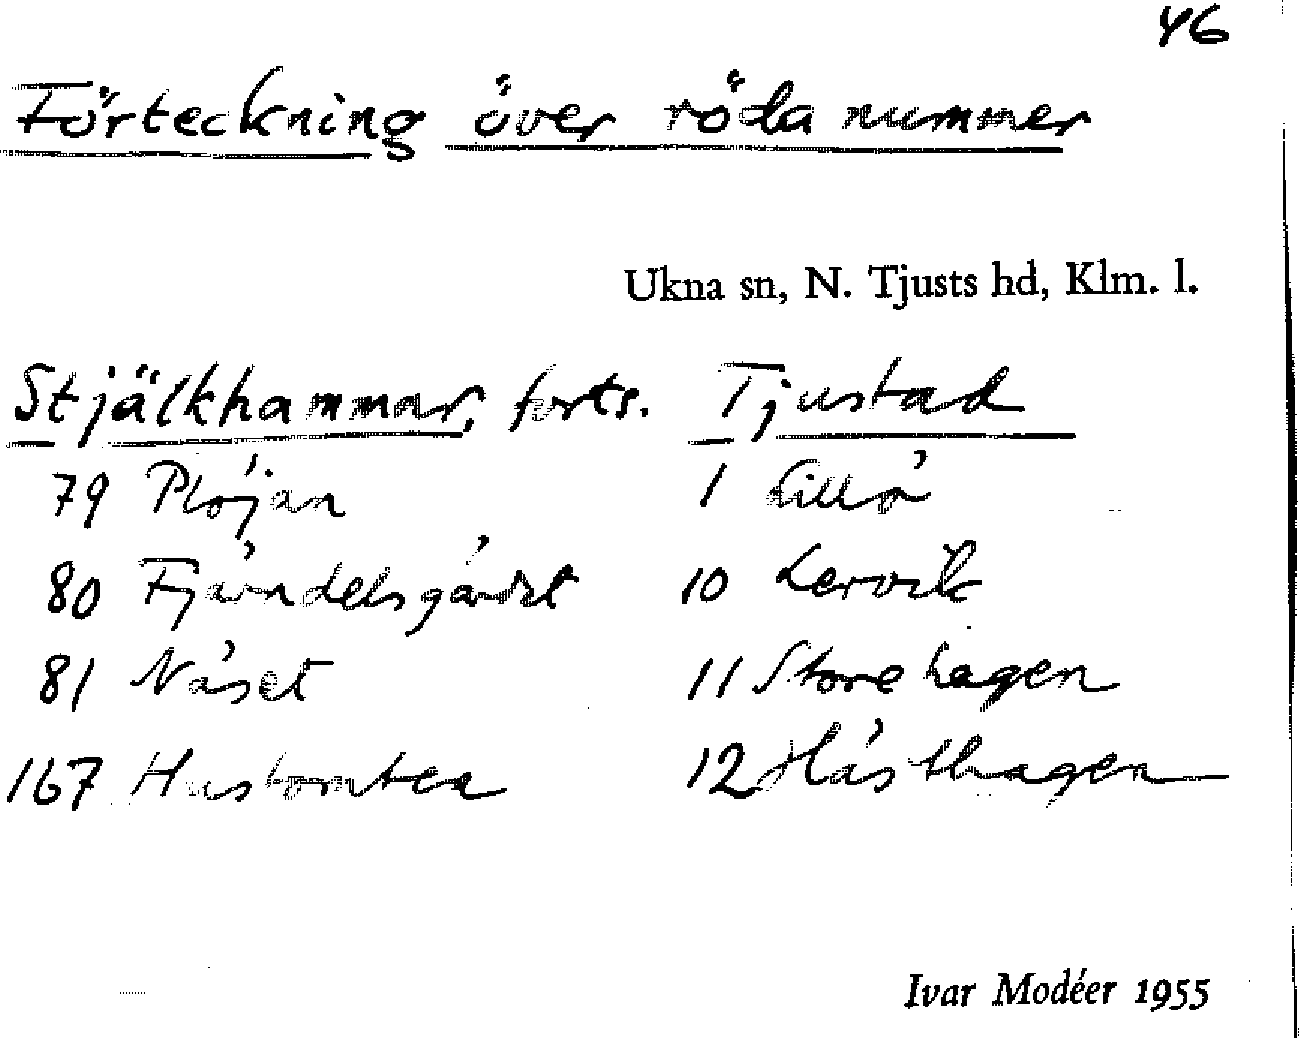 46
Förteckning över röda nummer
Ukna sn, N. Tjusts hd, Klm. l.
Stjälkhammar, forts.
79 Plöjan
80 Fjärndelsgärdet
81 Näset
167 Hustomten
Tjustad
1 Lillö
10 Lervik
11 Storehagen
12 Hästhagen
Ivar Modéer 1955